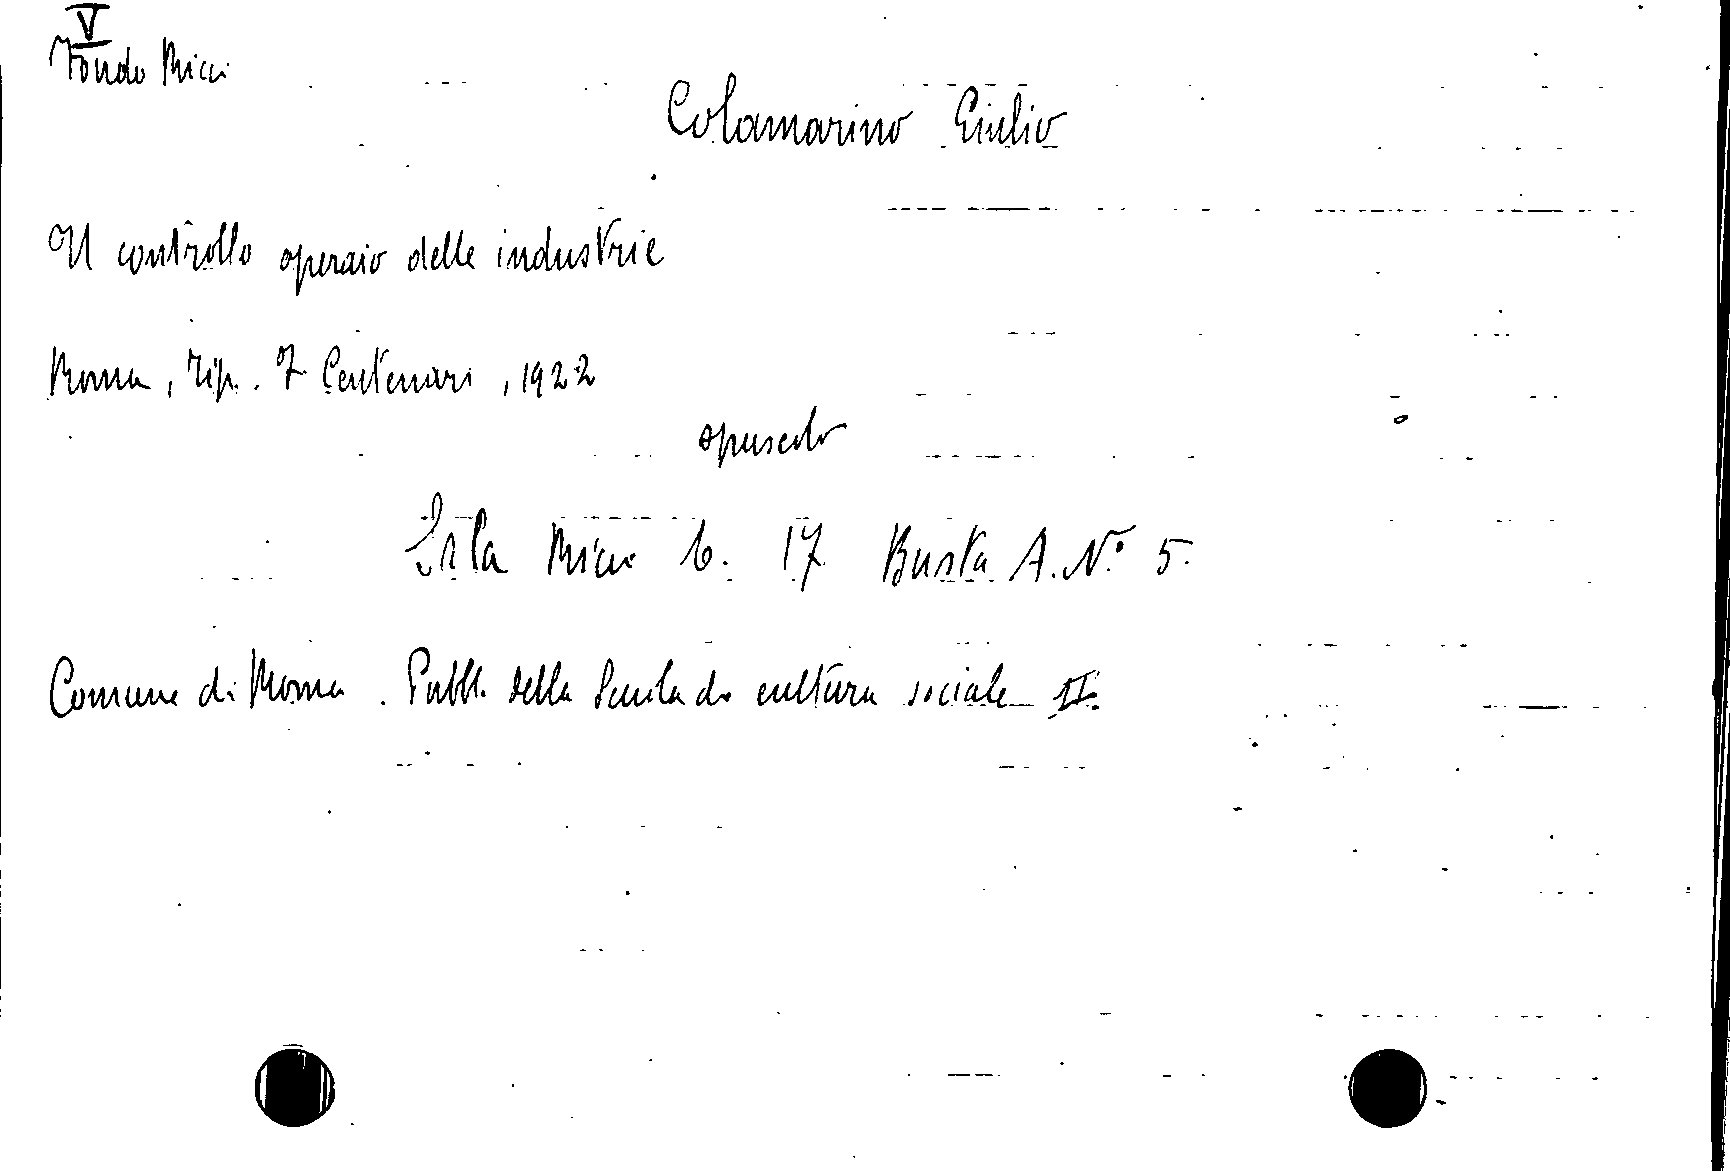 V
Fondo Ricci
Colamarino Giulio
Il controllo operaio delle industrie
Roma, Tip. F Centenari, 1922
opuscolo
Sala Ricci b. 17 Busta A. N° 5.
Comune di Roma. Pubbl. della Scuola di cultura sociale II.